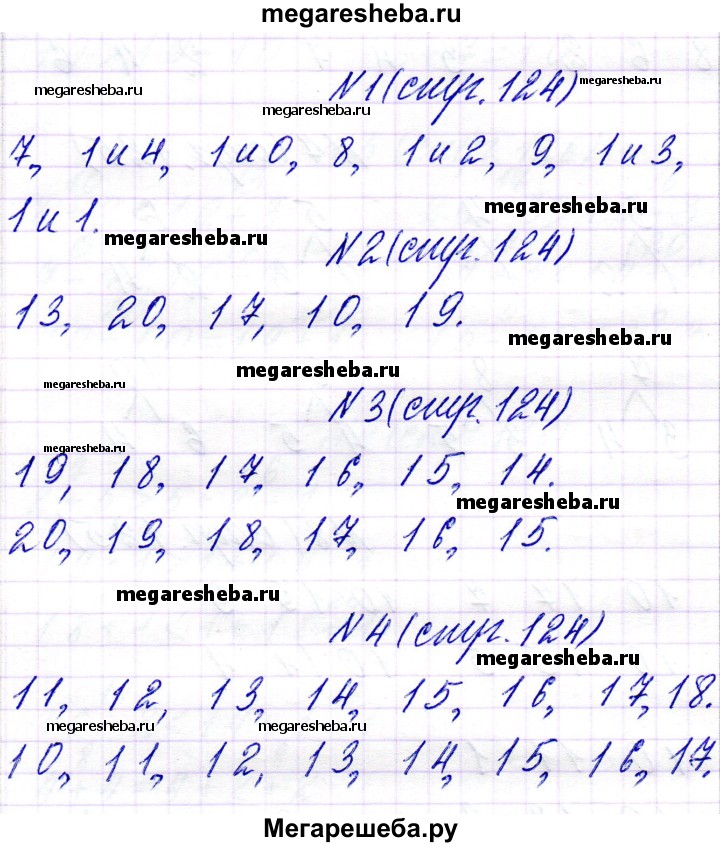 megaresheba.ru
megaresheba.ru
N1(стр. 124)
megaresheba.ru
megaresheba.ru
7, 1и4, 1и0, 8, 1и2, 9, 1и3,
1и1.
megaresheba.ru
megaresheba.ru
N2(стр. 124)
13, 20, 17, 10, 19.
megaresheba.ru
megaresheba.ru
megaresheba.ru
N3(стр. 124)
megaresheba.ru
19, 18, 17, 16, 15, 14.
megaresheba.ru
20, 19, 18, 17, 16, 15.
megaresheba.ru
N4(стр. 124)
megaresheba.ru
11, 12, 13, 14, 15, 16, 17, 18.
megaresheba.ru
megaresheba.ru
10, 11, 12, 13, 14, 15, 16, 17.
Мегарешеба.ру